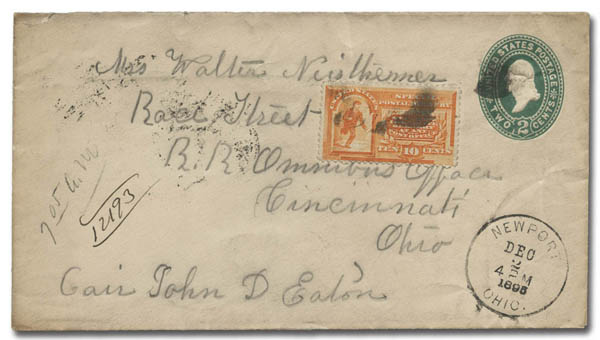 UNITED STATES POSTAGE
TWO 2 CENTS
Mrs Walter
Race Street
SPECIAL
POSTAL DELIVERY
TEN 10 CENTS
R. R. Omnibus Office
Cincinnati
Ohio
Cair John D Eaton
12193
NEWPORT
DEC
4 PM
1895
OHIO.